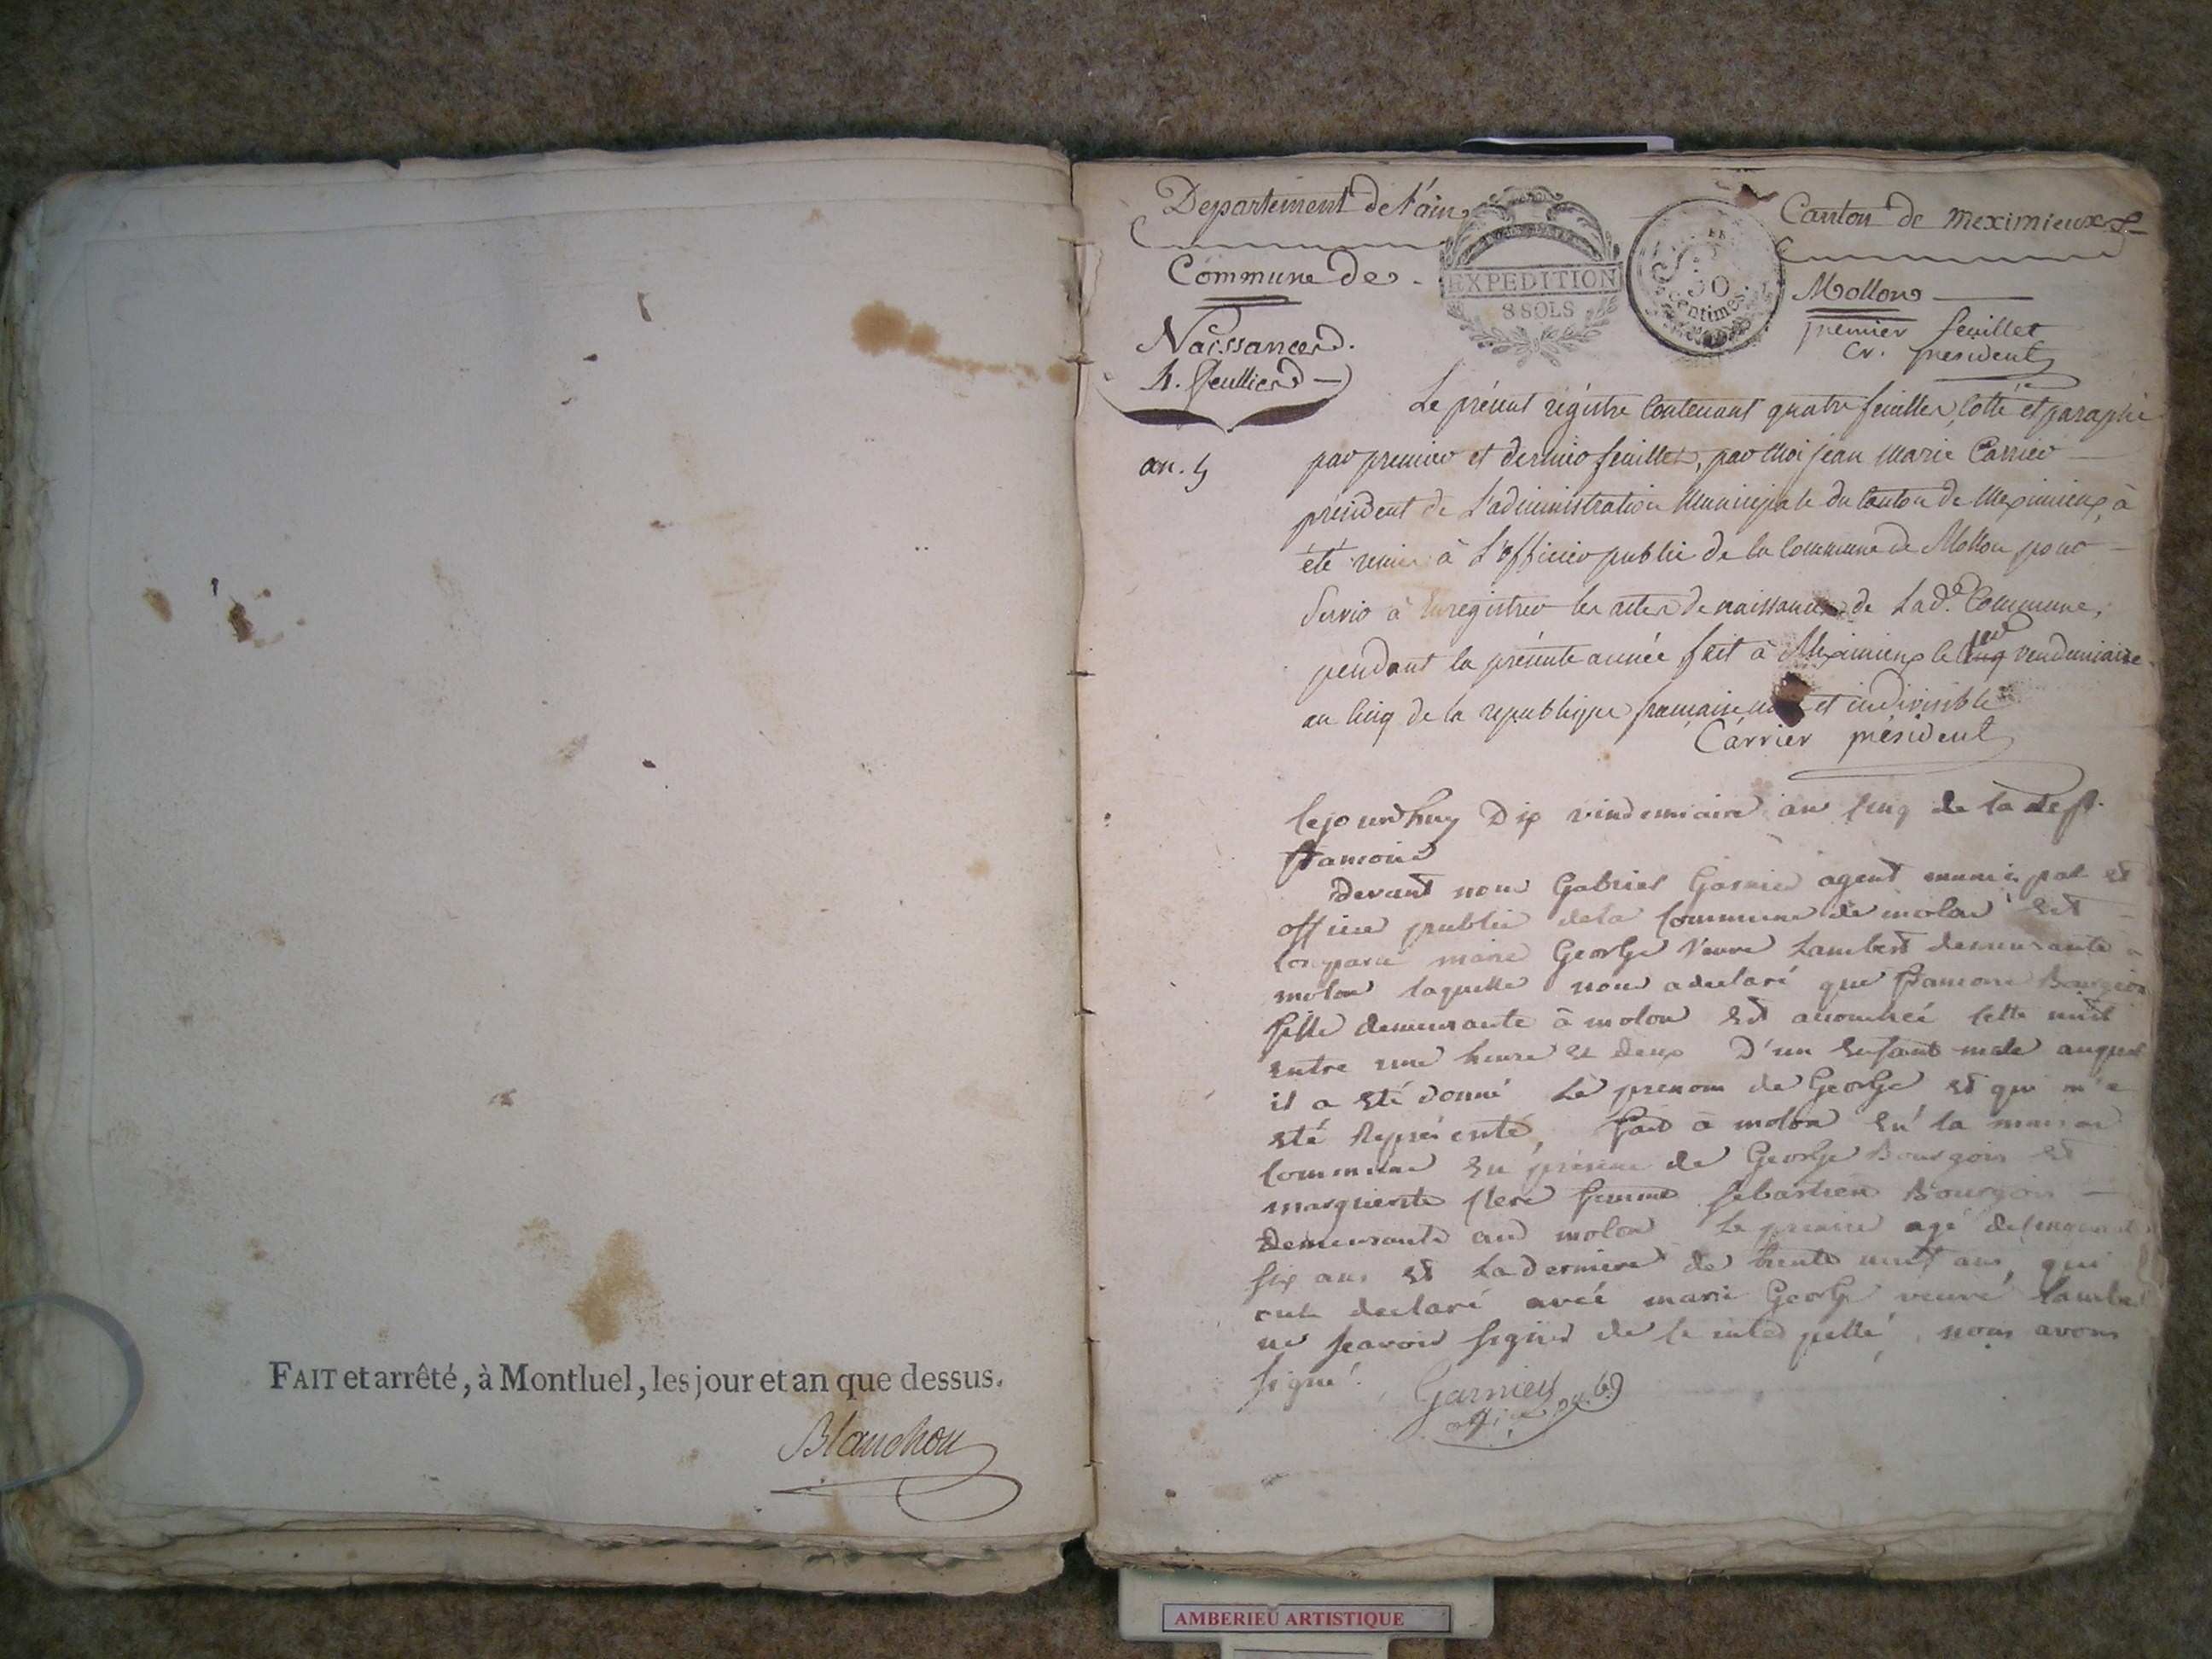 FAIT et arrêté, à Montluel, les jour et an que dessus.
Blanchon
Departement de l'ain
Canton de meximieux
EXPEDITION
8 SOLS
50
centimes
Commune de
Mollon
Naissances
4. feuilles
premier feuillet
cr. président
an. 5
Le présent régistre Contenant quatre feuilles, cotté et paraphé
par premier et dernier feuillet, par Moi jean Marie Carrier
président de L'administration Municipale du Canton de Meximieux, à
été remis à L'officier public de la Commune de Mollon pour
Servir à Enregistrer les actes de naissances de Lad.e Commune,
pendant la présente année fait à Meximieux le vendemiaire
an Cinq de la republique francaise une et indivisible
Carrier président
Cejourdhuy Dix vindemiaire an Cinq de la Rep.
francoise
Devant nous Gabriel Garnier agent municipal et
officier public de la Commune de molon Est
Comparu marie George Veuve Lambert demeurante a
molon laquelle nous a declaré que francoise Bourgois
fille demeurante à molon Est accouchée cette nuit
Entre une heure Et deux D'un Enfant male auquel
il a Eté donné Le prenom de George Et qui m'a
Eté Représenté, fait à molon En la maison
Commune En présence de George Bourgois Et
marguerite femme sebastien Bourgois
Demeurants aud molon Le premier agé de cinquante
six ans Et La derniere de trente ans, qui
ont declaré avec marie George veuve Lambert
ne scavoir signer de ce interpellé, nous avons
signé.
Garnier
offi.er pub.
AMBERIEU ARTISTIQUE